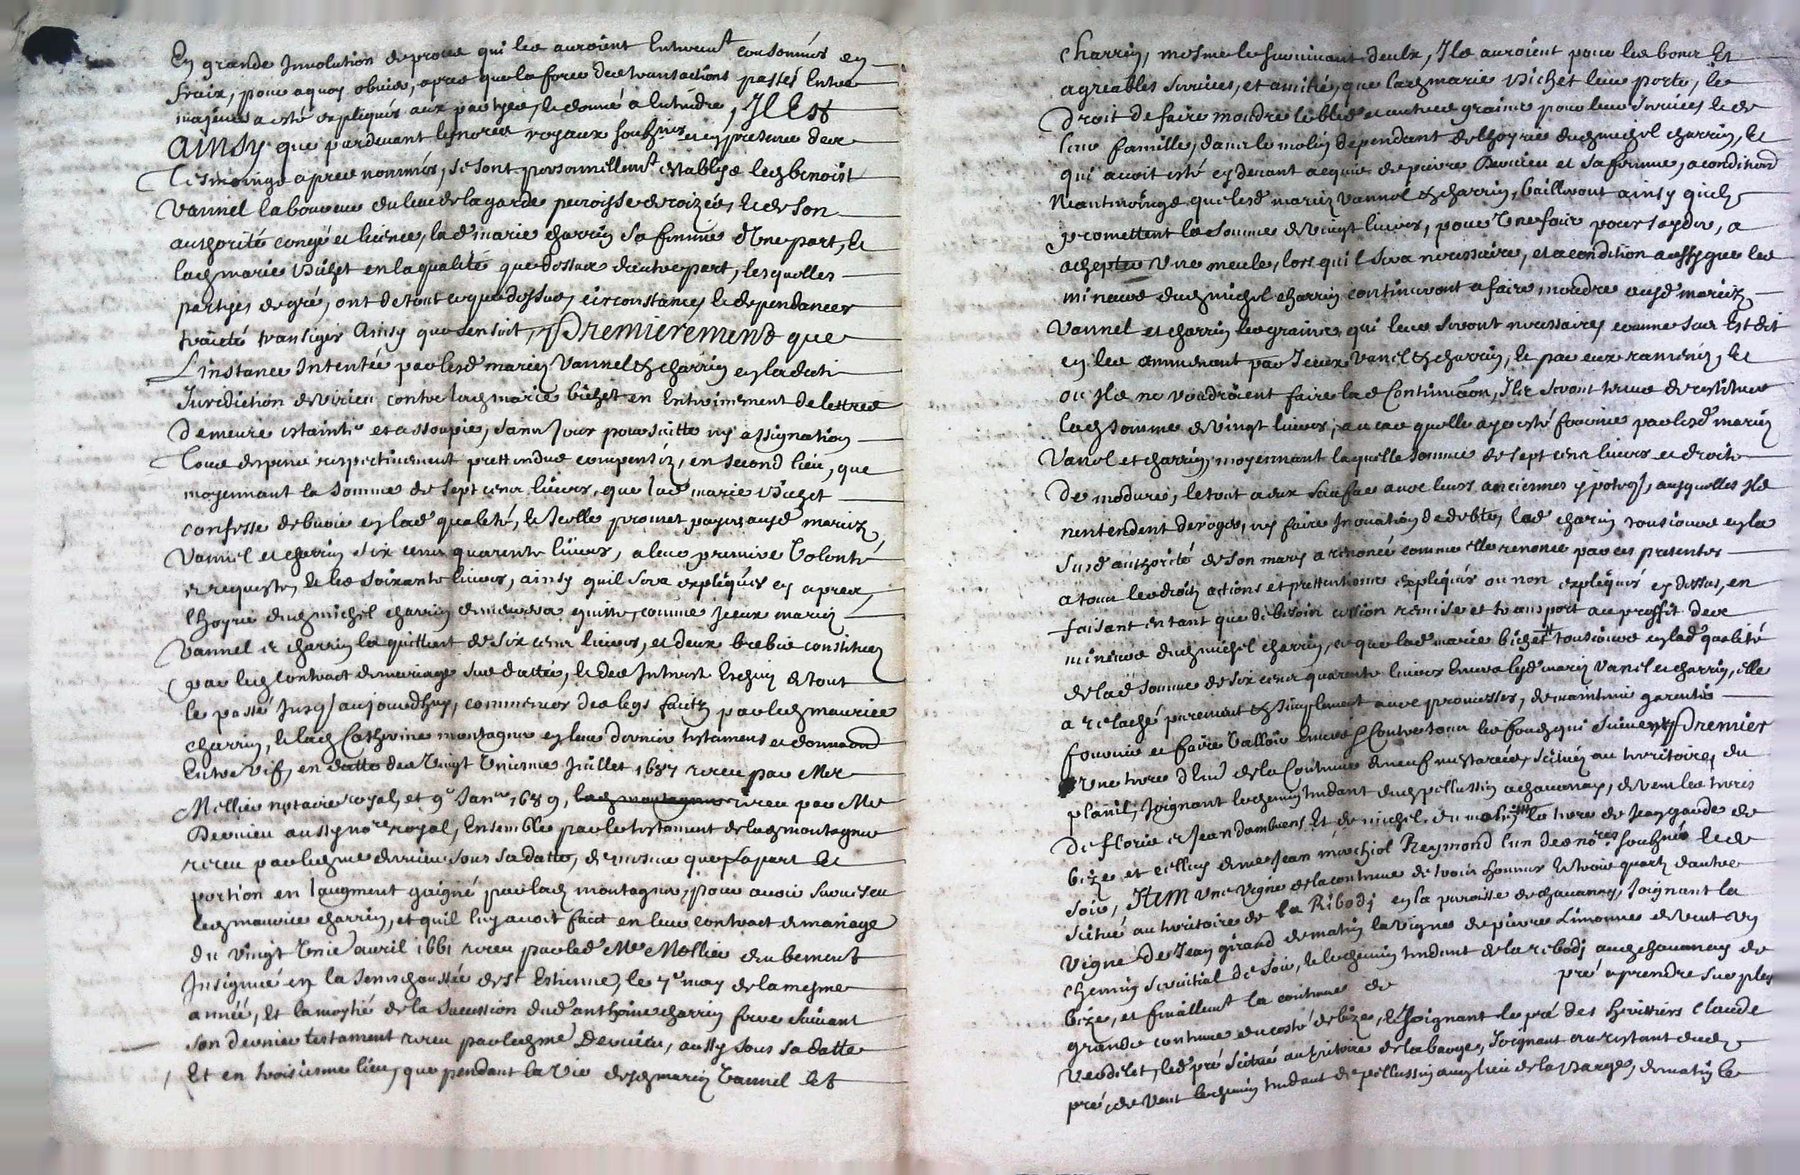 En grande Involution de proces qui les auroient Entierem.t consommés en
fraix, pour a quoy obvier, apres que la force des transactions passés Entre
majeurs a esté expliquée aux partyes, et donné a Entendre, IL EST
AINSY que pardevant les no.res royaux soubz.nes et en presence des
tesmoings apres nommés, se sont personnellem.t establys led. benoist
Vannel laboureur du lieu de la garde perroisse de roizey, et de son
authorité congé et licence, lad. marie charrin sa femme d'Une part, et
lad. marie Bichet en la qualité que dessus d'autre part, lesquelles
partyes de gré, ont de tout ce que dessus, circonstances, et dependances
traicté transigé Ainsy que s'ensuit, Premierement que
L'instance Intentée par lesd. mariez Vannel et charrin en la d.
Juridiction de Virieu contre lad. marie bichet en Entherinement de lettres
demeure estainte et assoupie, sans pour suitte ny assignation
tous despens respectivement prettendus compensez, en second lieu, que
moyennant la somme de sept cens livres, que lad. marie Bichet
confesse debvoir en lad. qualité, et Icelle promet payer ausd. mariez
Vannel et charrin six cens quarente livres, a leur premiere Volonté
et requeste, et les soixante livres, ainsy quil sera expliqués cy apres,
L'hoyrie dud. michel charrin demeurera quitte, comme Iceux mariez
Vannel et charrin la quittent de six cens livres, et deux brebis constituez
par led. Contract de mariage sus datté, et des Interest Escheuz de tout
le passé Jusq. aujourd'huy, comme des legs faitz par led. maurice
charrin, et lad. Catherine montagnier en leur dernier testament et donnaon
Entre Vifs, en datte des Vingt Uniesme Juillet 1687 receu par M.re
Mellier notaire royal, et 9.e Jan.er 1689, receu par M.e
Dervieu aussy no.re royal, Ensemble par le testament de lad. montagnier
receu par led. m.e dervieu sous sa datte, de mesme que la part et
portion en l'augment gaigné par lad. montagnier, pour avoir survescu
led. maurice charrin, et quil luy avoit faict en leur contract de mariage
du Vingt Unie. avril 1661 receu par led. M.e Mellier duement
Insignué en la Seneschaussée de S.t Estienne, le 7.e may de la mesme
année, Et la moytié de la succession dud. anthoine charrin frere suivant
son dernier testament receu par led. m.e Dervieu, aussy sous sa datte
Et en troisiesme lieu, que pendant la Vie desd. mariez Vannel et
charrin, mesme le survivant d'eulx, Ils auroient pour les bons Et
agreables services, et amitié, que lad. marie Bichet leur porte, le
Droit de faire moudre le bled et autres graines pour leur services et de
leur famille, dans le molin dependant de l'hoyrie dud. michel charrin, et
qui avoit esté cy devant acquis de pierre Dervieu et sa femme, a condition
Neantmoings que lesd. mariez Vannel et charrin, bailleront ainsy quils
promettent la somme de Vingt livres, pour Une fois pour aydér, a
achepter Une meule, lors qu'il sera necessaire, et a condition aussy que les
mineurs dud. michel charrin continueront a faire moudre ausd. mariez
Vannel et charrin les graines qui leur seront necessaires comme sus Est dit
en les ammenant par Iceux Vanel et charrin, et par eux ramenés, et
ou Ils ne voudroient faire lad. Continuaon, Ils seront tenus de restituer
lad. somme de Vingt livres, au cas quelle aye esté fournie par lesd. mariez
Vanel et charrin, moyennant laquelle somme de sept cens livres et droits
de modure, le tout a eux sauf avec leurs anciennes ypoteq., ausquelles Ils
nentendent deroger, ny faire Inovation de debte, lad. charin tousiours en la
susd. authorité de son mary a renoncé comme elle renonce par ces presentes
a tous les droitz actions et prettentions expliqués ou non expliqués cy dessus, en
faisant en tant que de besoin cession remise et transport au proffit des
mineurs dud. michel charrin, et que lad. marie bichet tousiours en lad. qualité
de lad. somme de six cens quarente livres Envers lesd. mariez Vanel et charrin, elle
a relaché purement et simplement avec promesses, de maintenir garentir
fournir et faire Valloir Envers et Contre tous les fondz qui suivent, Premier
Une terre de la Contenue de neuf mestarées, scituée au territoire, du
planil, Joignant le chemin tendant de pellussin a chavanay, de vent les terres
de florie et Jean dambuens Et de michel, du matin la terre de Jean garde de
bize et celluy de me Jean marchiol Reymond l'un des no.res soubz.nes et de
soir, ITEM Une vigne de la contenue de trois hommes et trois quartz d'autre
scitué au territoire de la Ribodj en la paroisse de chavanay, Joignant la
Vigne de Jean girard de matin la Vigne de pierre Limonne de vent Un
chemin servitial de soir, et le chemin tendant de la ribodj aud. chavanay de
bize, et finallem.t la contenue de pré a prendre sur plus
grande contenue du costé de bize, et Joignant le pré des heritiers Claude
Verdilet, led. pré scitué au teritoire de la barge, Joignant au restant dud.
pré, de Vent le chemin tendant de pellussin au lieu de la Barge, de matin le